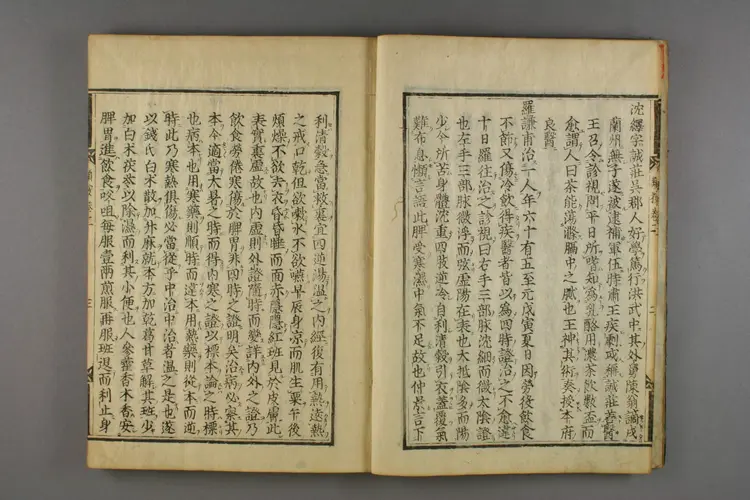 沈繹字誠莊吳郡人好學篤行洪武中其外舅陳翁謫戍
蘭州無子遂被逮補軍伍時肅王疾劇或繹誠莊善醫
王召令診視問平日所嗜知為乳酪用濃茶飲數盃而
愈謂人曰茶能蕩滌膈中之膩也王神其術奏授本府
良醫
羅謙甫治一人年六十有五至元戊寅夏日因勞役飲食
不節又傷冷飲得疾醫者皆以為四時證治之不愈逮
十日羅往治之診視曰右手三部脉沈細而微太陰證
也左手三部脉微浮而弦虛陽在表也大抵陰多而陽
少今所苦身體沈重四肢逆冷自利清穀引衣蓋覆氣
難布息懶言語此脾受寒濕中氣不足故也仲景言下
利清穀急當救裏宜四逆湯溫之內經復有用熱遠熱
之戒口乾但欲嗽水不欲嚥早辰身凉而肌生粟午後
煩燥不欲去衣昏昏睡而面赤隱隱紅班見於皮膚此
表實裏虛故也內虛則外證隨時而變詳內外之證乃
飲食勞倦寒傷於脾胃非四時之證明矣治病必察其
本今適當大暑之時而得內寒之證以標本論之時標
也病本也用寒藥則順時而違本用熱藥則從本而逆
時此乃寒熱俱傷必當從乎中治中治者溫之是也遂
以錢氏白术散加升麻就本方加乾葛甘草解其班少
加白术茯苓以除濕而利其小便也人參藿香木香安
脾胃進飲食㕮咀每服壹兩煎服再服班退而利止身